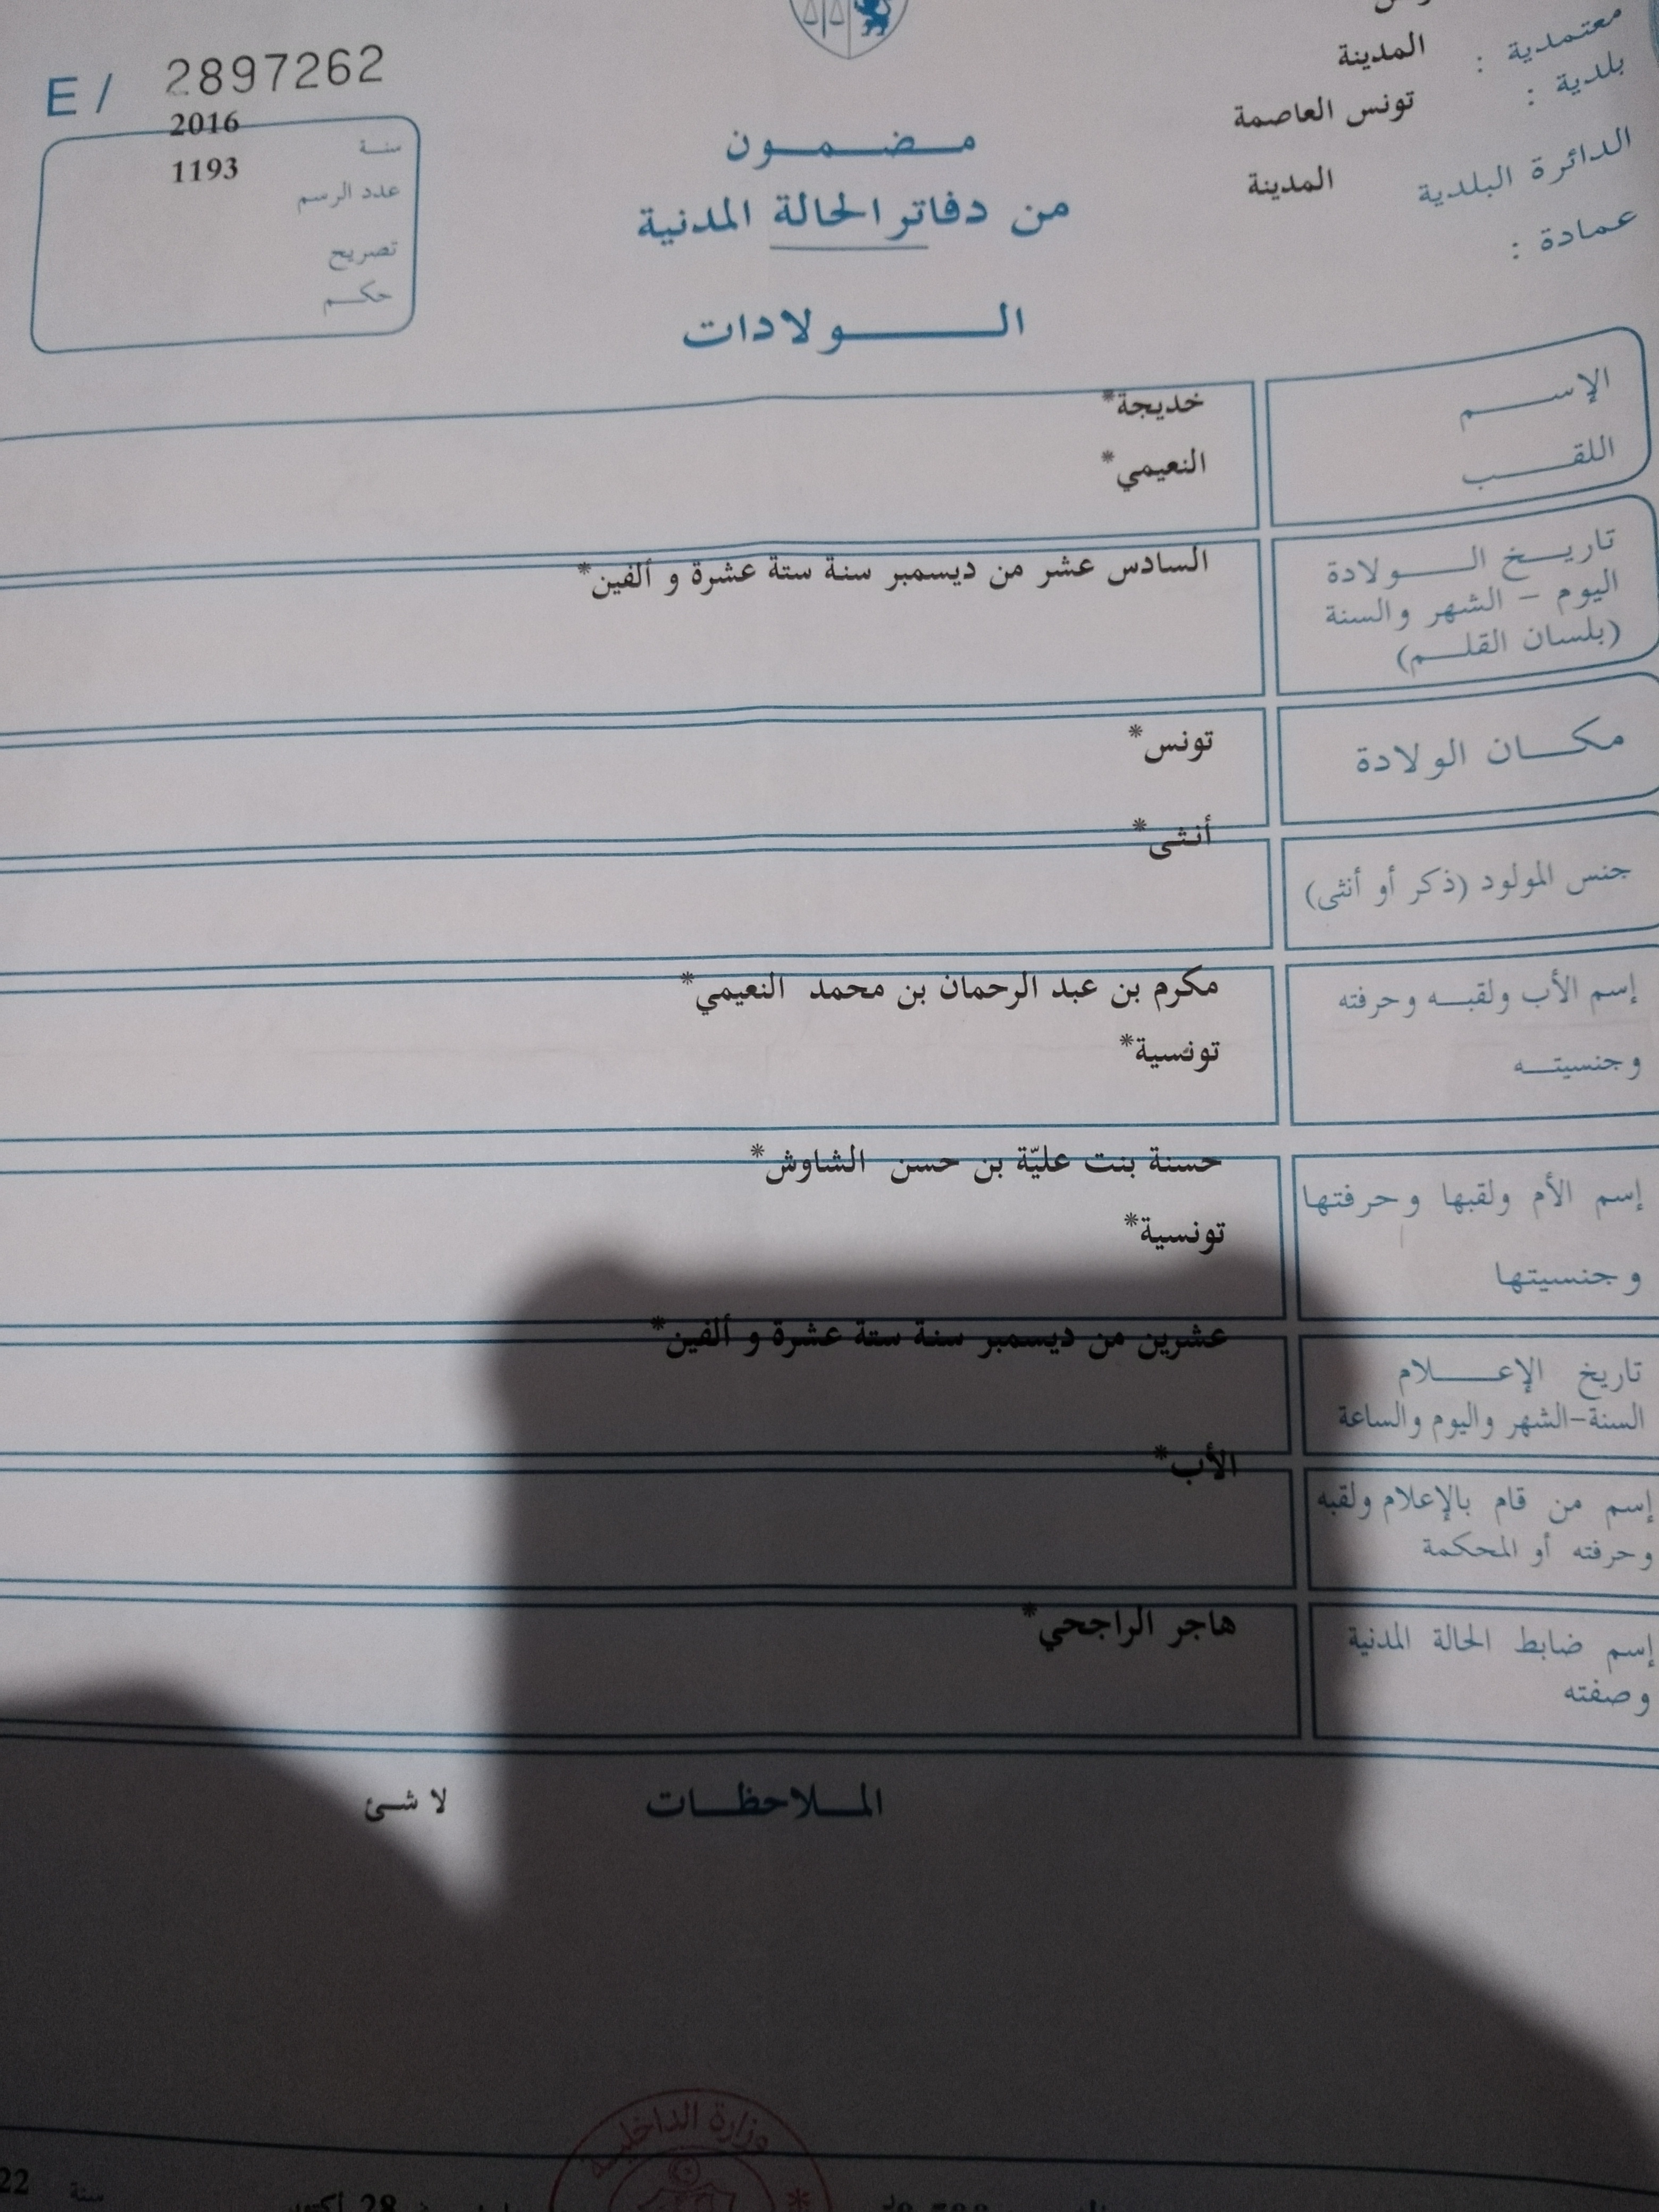 معتمدية : المدينة
بلدية : تونس العاصمة
الدائرة البلدية المدينة
عمادة :
E / 2897262
سنة 2016
عدد الرسم 1193
تصريح
حكم
مضمون
من دفاتر الحالة المدنية
الولادات
الإسم خديجة*
اللقب النعيمي*
تاريخ الولادة السادس عشر من ديسمبر سنة ستة عشرة و ألفين*
اليوم – الشهر والسنة
(بلسان القلم)
مكان الولادة تونس*
جنس المولود (ذكر أو أنثى) أنثى*
إسم الأب ولقبه وحرفته مكرم بن عبد الرحمان بن محمد النعيمي*
وجنسيته تونسية*
إسم الأم ولقبها وحرفتها حسنة بنت عليّة بن حسن الشاوش*
وجنسيتها تونسية*
تاريخ الإعلام عشرين من ديسمبر سنة ستة عشرة و ألفين*
السنة-الشهر واليوم والساعة
إسم من قام بالإعلام ولقبه الأب*
وحرفته أو المحكمة
إسم ضابط الحالة المدنية هاجر الراجحي*
وصفته
الملاحظات لا شئ
وزارة الداخلية
28 أكتوبر سنة 22